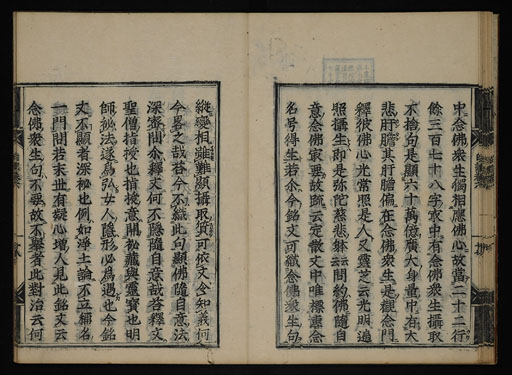 中念佛衆生偏相應佛心故當二十二行
餘三百七十八字衣中有念佛衆生攝取
不捨句是顯六十万億廣大身量中在大
悲肝膽其肝膽偏在念佛衆生是觀念門
釋彼佛心光常照是人又靈芝云光明遍
照攝生即是弥陀慈悲躰云問約佛隨自
意念佛家要故䟽云定散文中唯標專念
名号得生若尒今銘文可織念佛衆生句
縱礙相雖難顯攝取質可依文令知義何
今畧之哉荅今不織此句顯佛隨自意法
深密間尒釋文何不隱隨自意哉荅釋文
聖僧指授也指授意開秘藏與靈寶也明
師祕法遂爲弘女人隱形必爲過也今銘
文不顯者深秘也例如淨土論不立稱名
一門間若末世有疑心増人見此銘文云
念佛衆生句不要故不擧者此對治云何